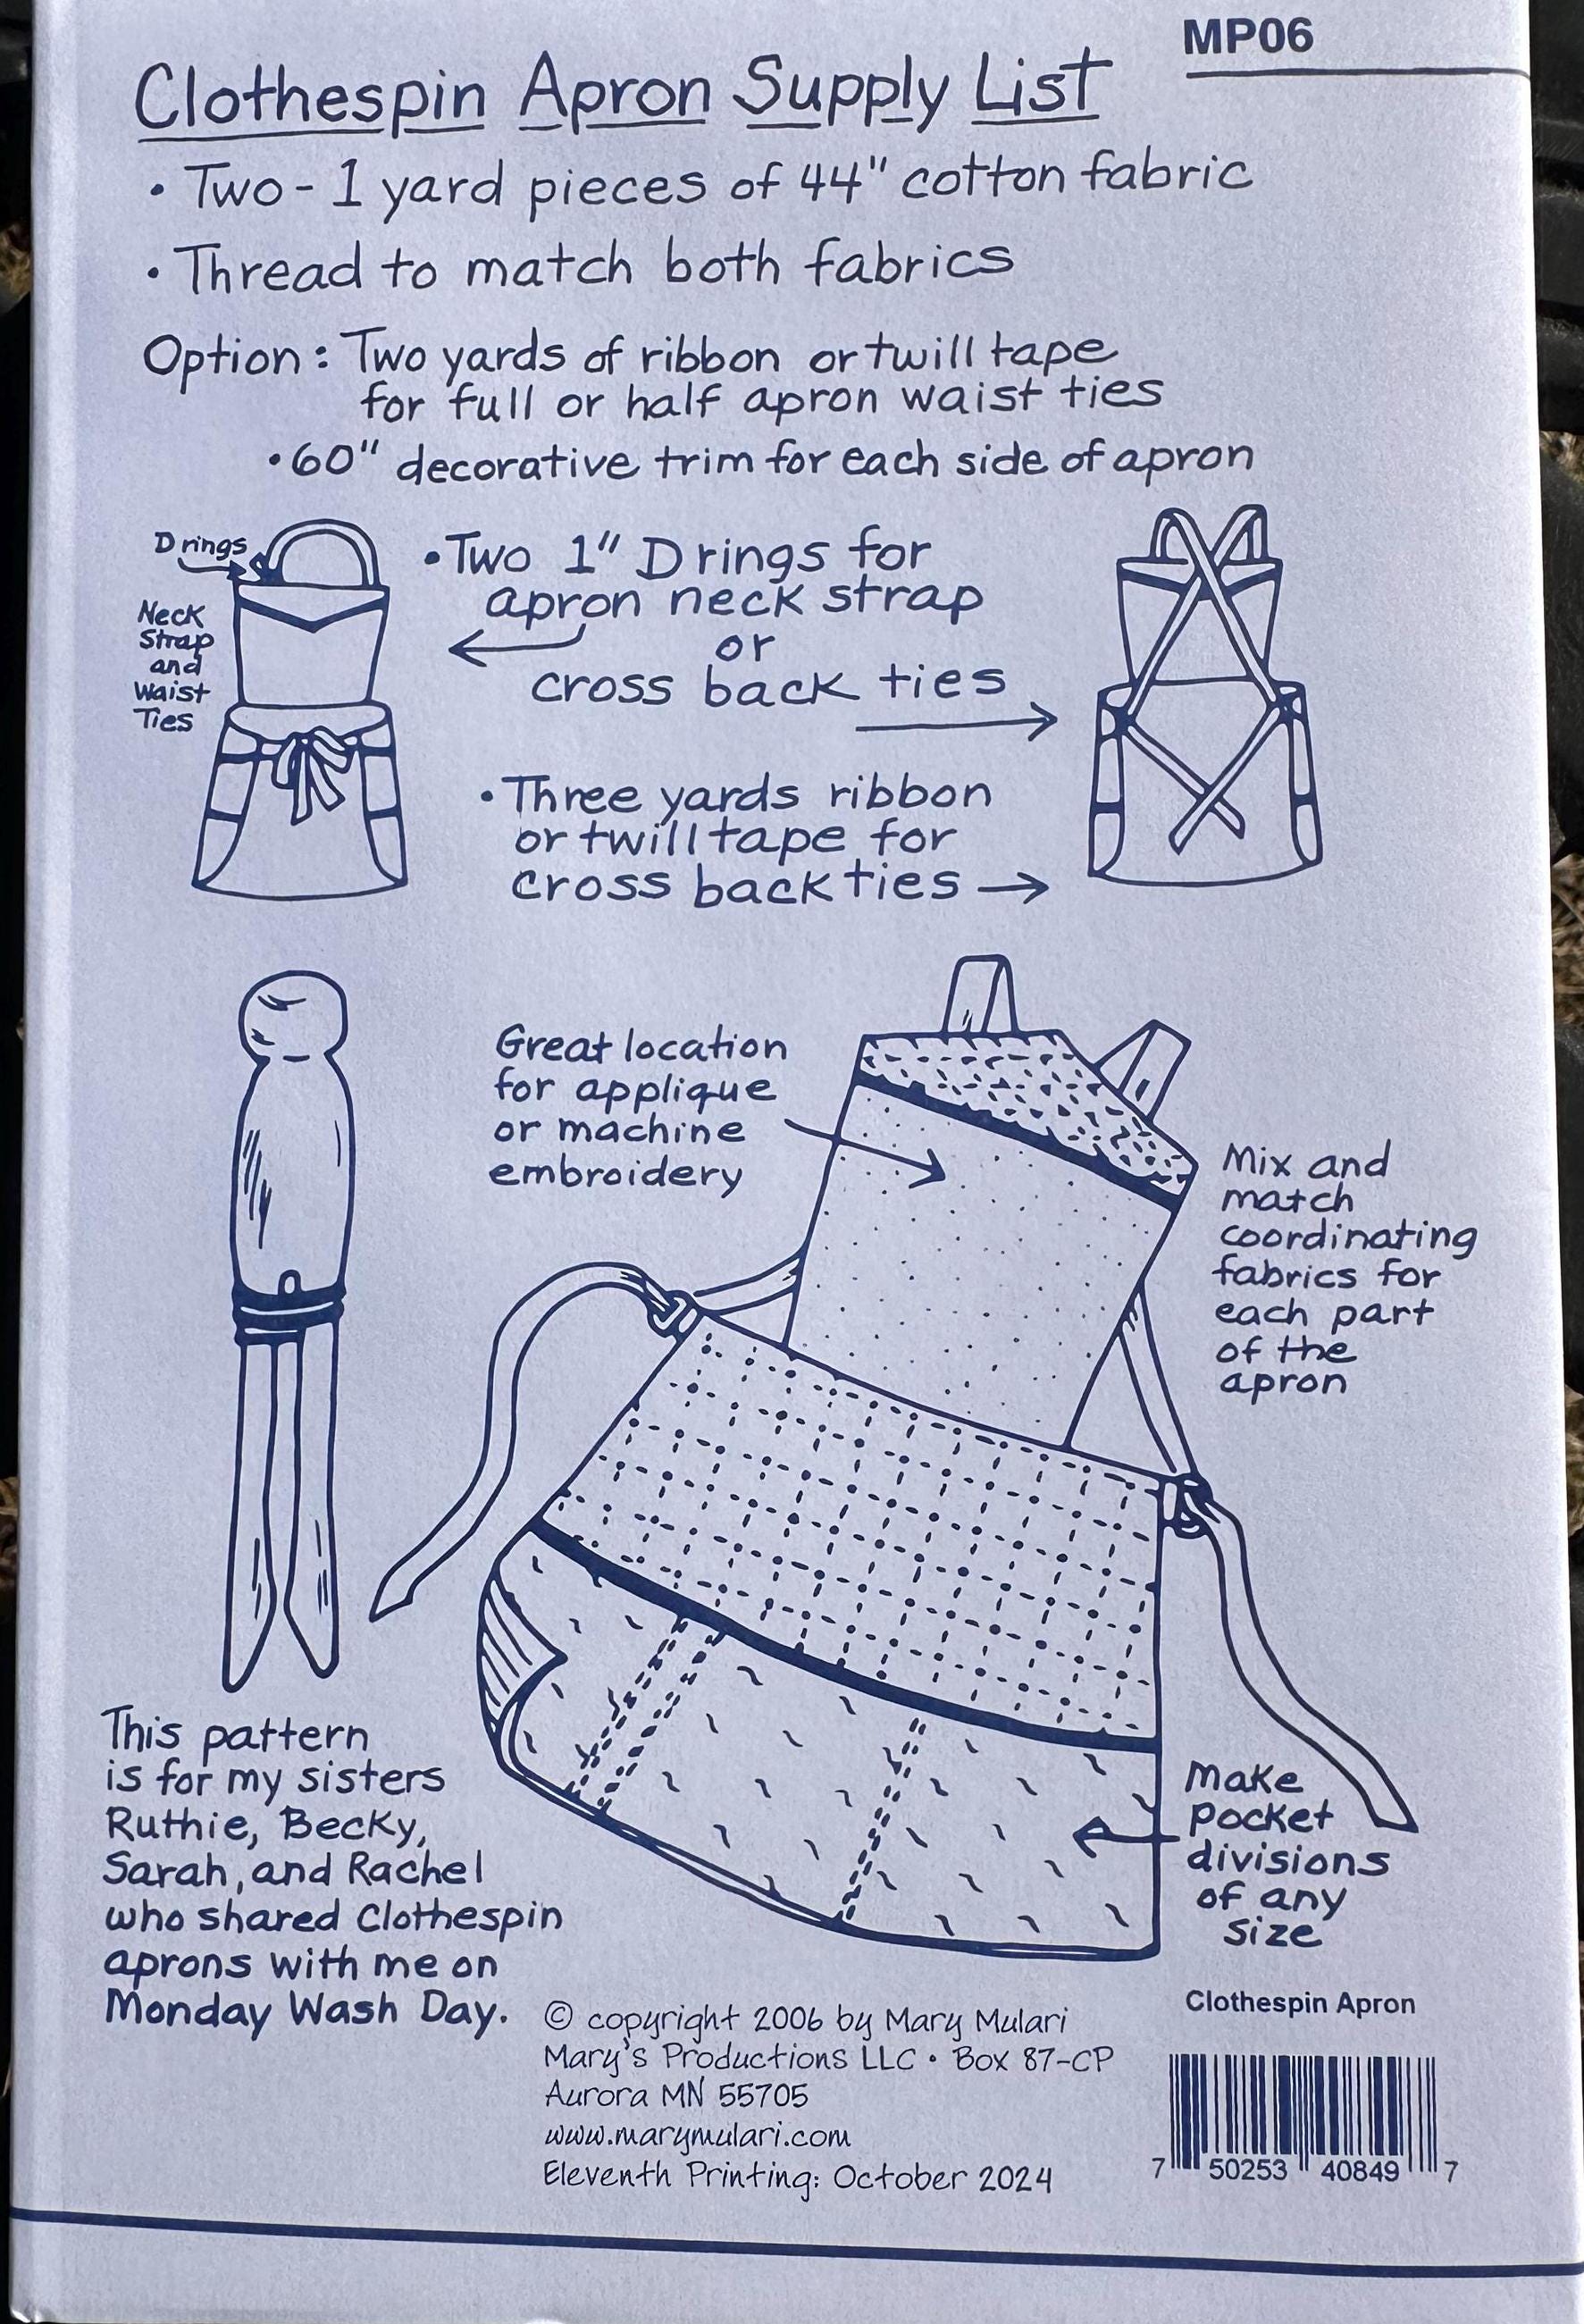 MP06
Clothespin Apron Supply List
• Two - 1 yard pieces of 44" cotton fabric
• Thread to match both fabrics
Option: Two yards of ribbon or twill tape
for full or half apron waist ties
• 60" decorative trim for each side of apron
D rings
Neck
Strap
and
Waist
Ties
• Two 1" D rings for
apron neck strap
or
cross back ties
• Three yards ribbon
or twill tape for
cross back ties
Great location
for applique
or machine
embroidery
Mix and
match
coordinating
fabrics for
each part
of the
apron
This pattern
is for my sisters
Ruthie, Becky,
Sarah, and Rachel
who shared Clothespin
aprons with me on
Monday Wash Day.
Make
pocket
divisions
of any
size
© copyright 2006 by Mary Mulari
Mary's Productions LLC • Box 87-CP
Aurora MN 55705
www.marymulari.com
Eleventh Printing: October 2024
Clothespin Apron
7 50253 40849 7